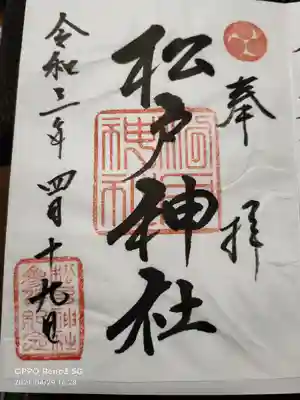 奉拝
松戸神社
令和三年四月十九日
OPPO Reno3 5G
2021/04/29 16:28